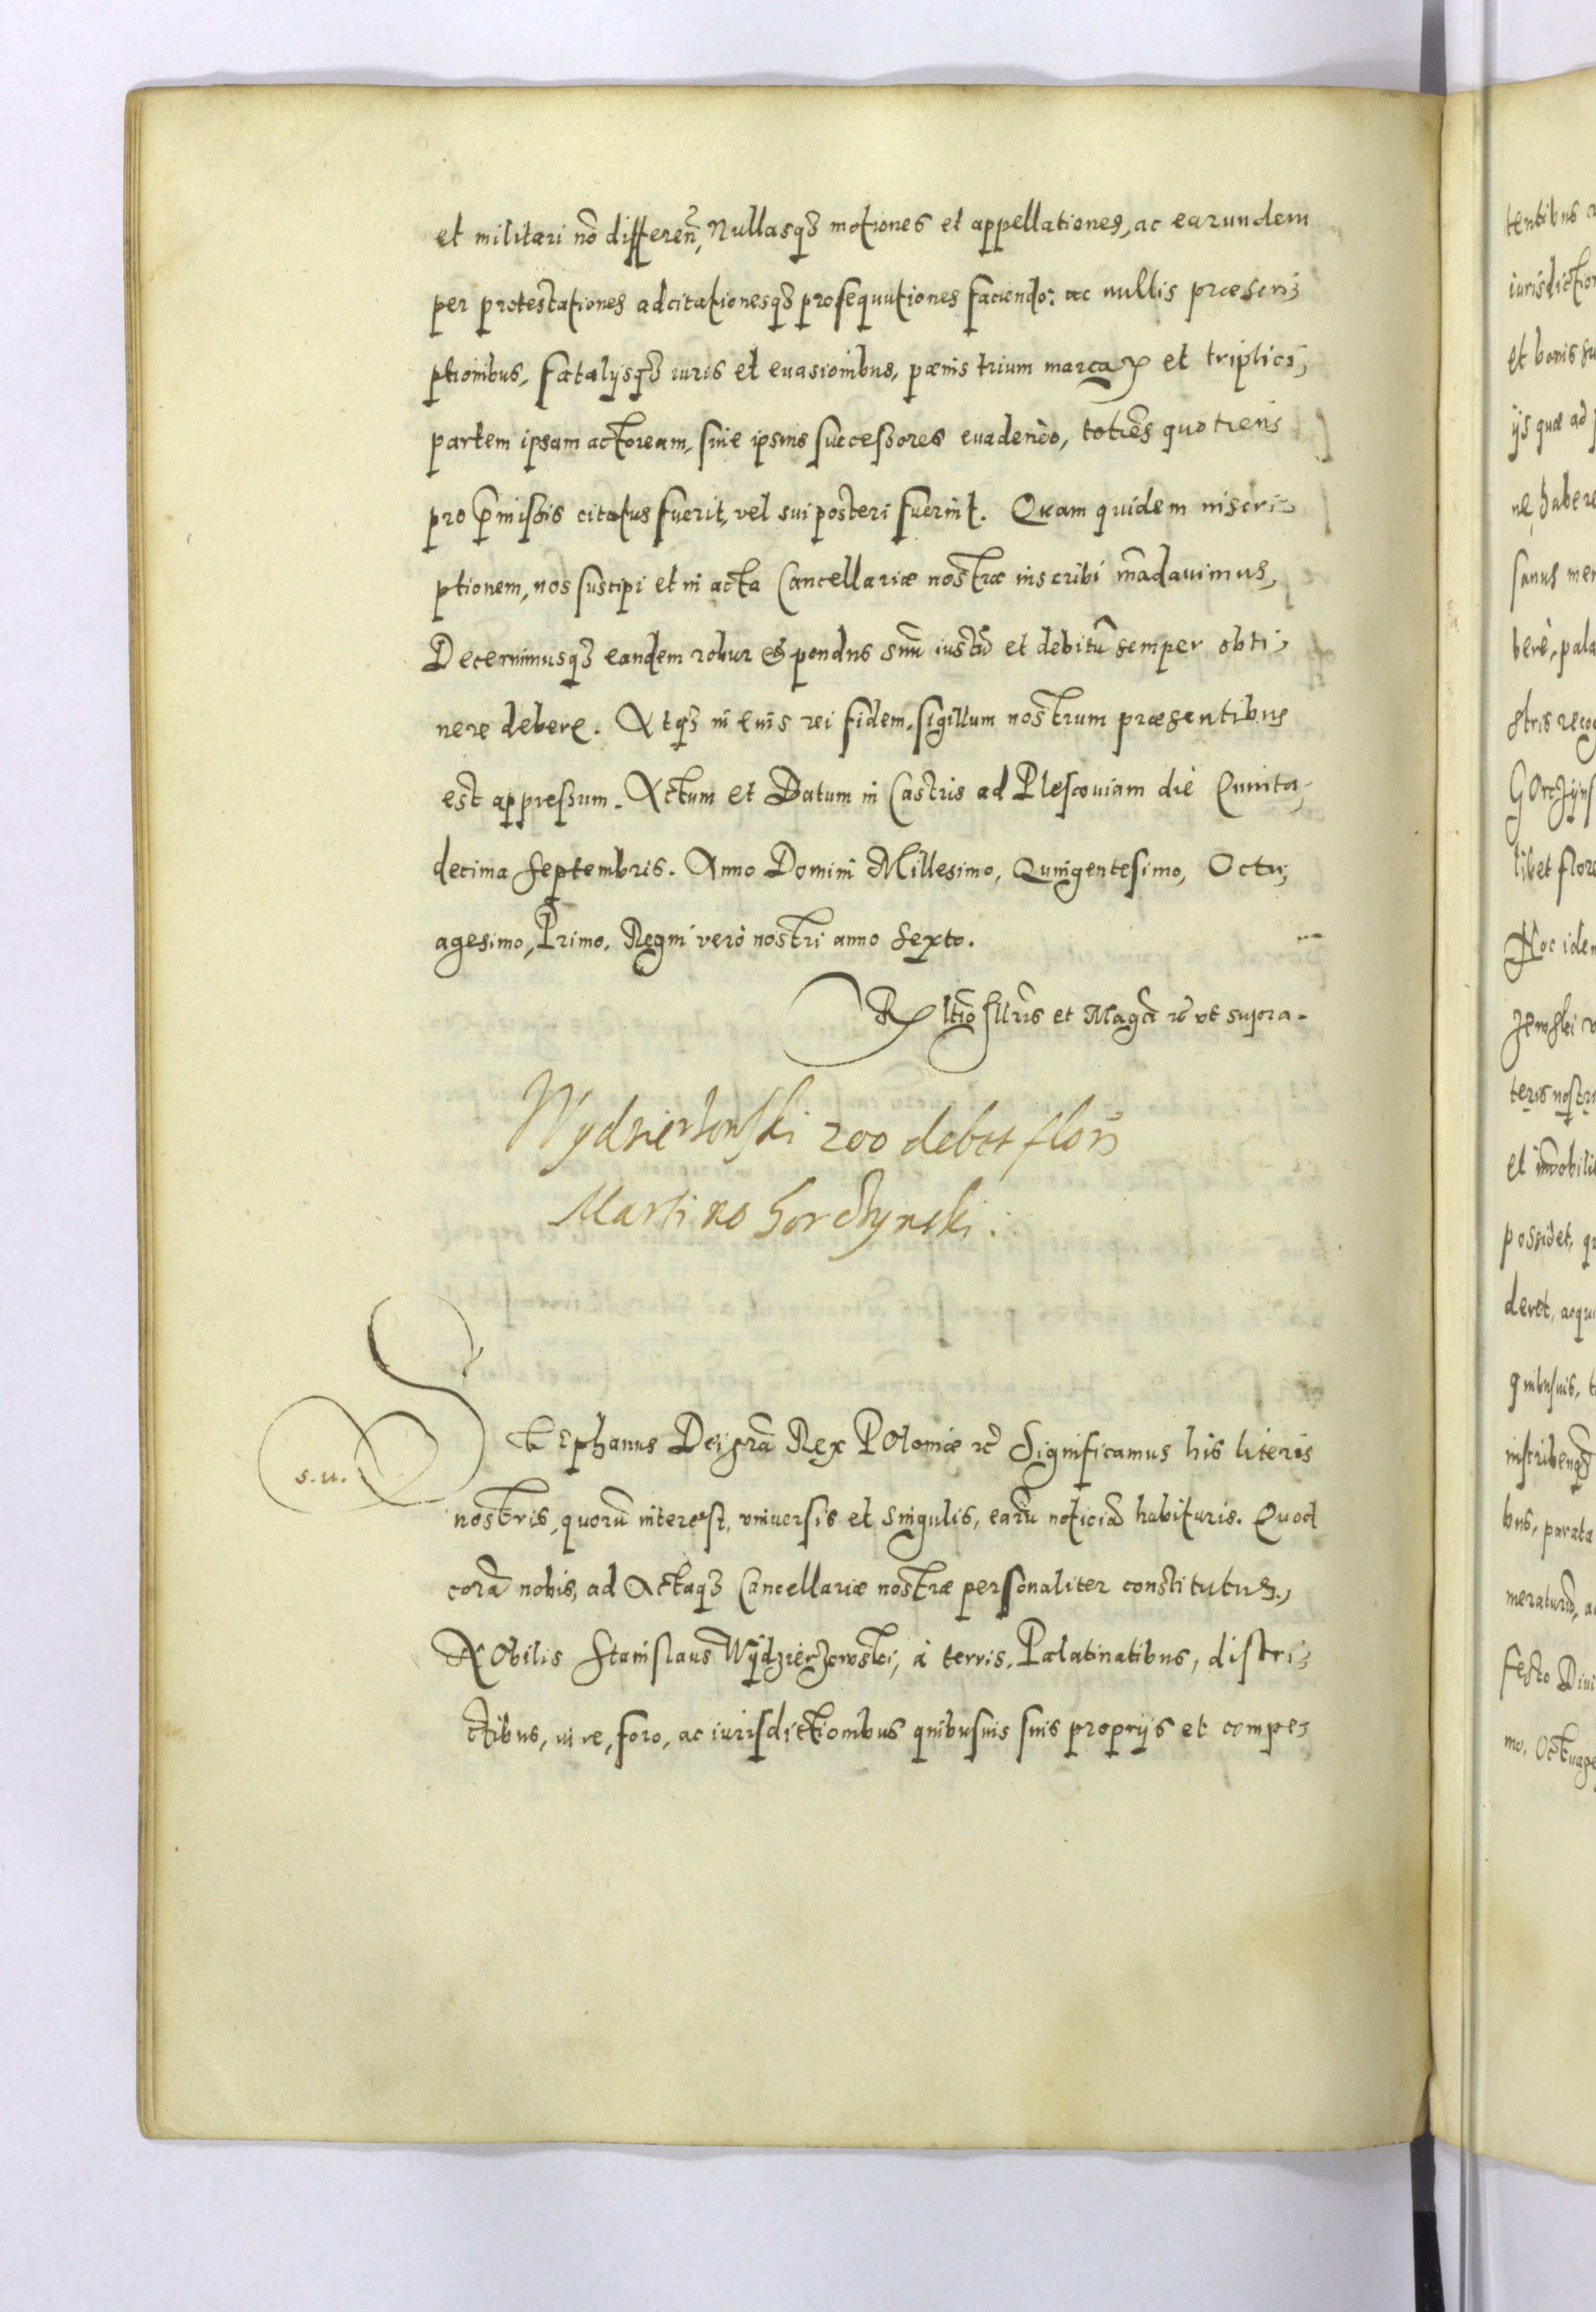 et militari nō differeñ, Nullasq́ꝫ motiones et appellationes, ac earundem
per protestationes adcitationesq́ꝫ prosequutiones faciendo: ac nullis præscri⸗
ptionibus, fatalijsq́ꝫ iuris et euasionibus, pænis trium marcaꝝ et triplici,
partem ipsam actoream, siue ipsius successores euadendo, toties quotiens
pro p̄missis citatus fuerit, vel sui posteri fuerint. Quam quidem inscri⸗
ptionem, nos suscipi et in acta Cancellariæ nostræ inscribi m̄adauimus,
Decernimusq́ꝫ eandem robur et pondus suū iustū et debitū semper obti⸗
nere debere. Atq́ꝫ in euis rei fidem, sigillum nostrum præsentibus
est appressum. Actum et Datum in Castris ad Plescouiam die Quinta,
decima Septembris. Anno Domini Millesimo, Quingentesimo, Octu,
agesimo, Primo. Regni verò nostri anno Sexto.
Rltio Illris et Magci rc̄ vt supra.
Wydzierzowski 200 debet flor̄
Martino Gorchynski.
s.u.
STEphanus Dei gr̄a Rex POloniæ rc̄ Significamus his literis
nostris, quorū interest, vniuersis et singulis, earū noticiā habituris. Quod
corā nobis, ad Actaq́ꝫ Cancellariæ nostræ personaliter constitutus,
NObilis Stanislaus Wÿdzierzowski, à terris, Palatinatibus, distri⸗
ctibus, iure, foro, ac iurisdictionibus quibusuis suis proprijs et compe⸗